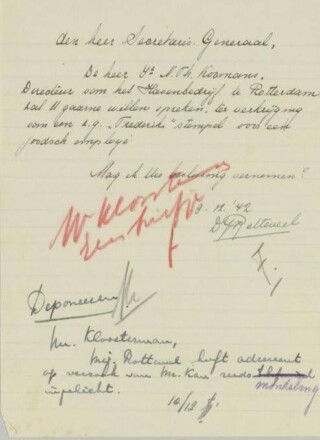 den heer Secretaris Generaal,
De heer Ir N. Th. Koomans,
Directeur van het Havenbedrijf te Rotterdam
had U gaarne willen spreken, ter verkrijging
van een z.g. "Frederiks" stempel voor een
joodsch employé
Mag ik Uw beslissing vernemen?
9-12-'42
Mr Kloosterman
Deponeeren
Mr. Kloosterman,
Mej. Rottaud heeft adressant
op verzoek van Mr. Kan reeds
mondeling
ingelicht.
10/12